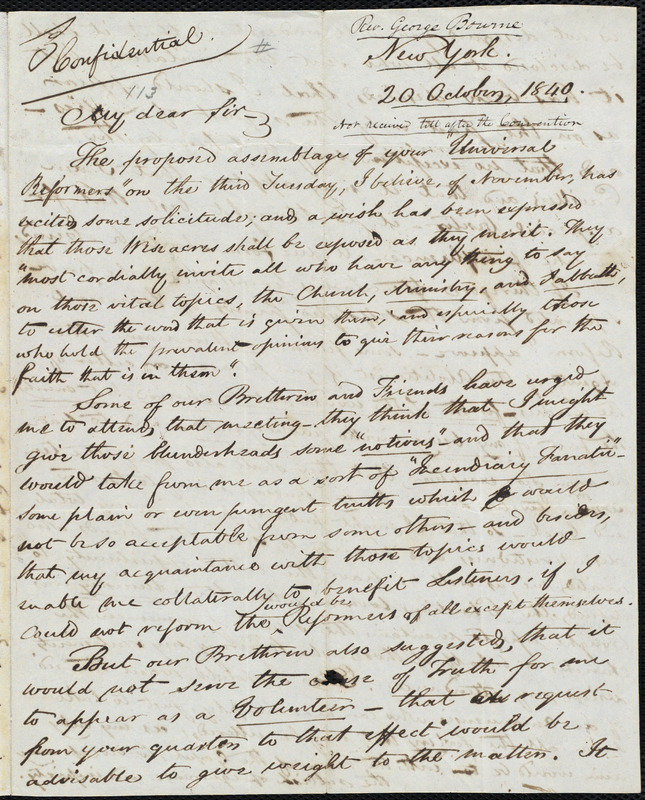 Confidential.
#
113
Rev. George Bourne
New York.
20 October, 1840.
Not received till after the Convention
My dear Sir—
The proposed assemblage of your "Universal
Reformers" on the third Tuesday, I believe, of November, has
excited some solicitude; and a wish has been expressed
that those Wiseacres shall be exposed as they merit. They
"most cordially invite all who have any thing to say
on those vital topics, the Church, Ministry, and Sabbath,
to utter the word that is given them, and especially those
who hold the prevalent opinions to give their reasons for the
faith that is in them".
Some of our Brethren and Friends have urged
me to attend that meeting— they think that I might
give those blunderheads some "notions"— and that they
would take from me as a sort of "Incendiary Fanatic"—
some plain or even pungent truths which would
not be so acceptable from some others— and besides,
that my acquaintance with those topics would
enable me collaterally to benefit Listeners, if I
could not reform the would be Reformers of all except themselves.
But our Brethren also suggested, that it
would not serve the cause of Truth for me
to appear as a Volunteer— that a request
from your quarter to that effect would be
advisable to give weight to the matter. It